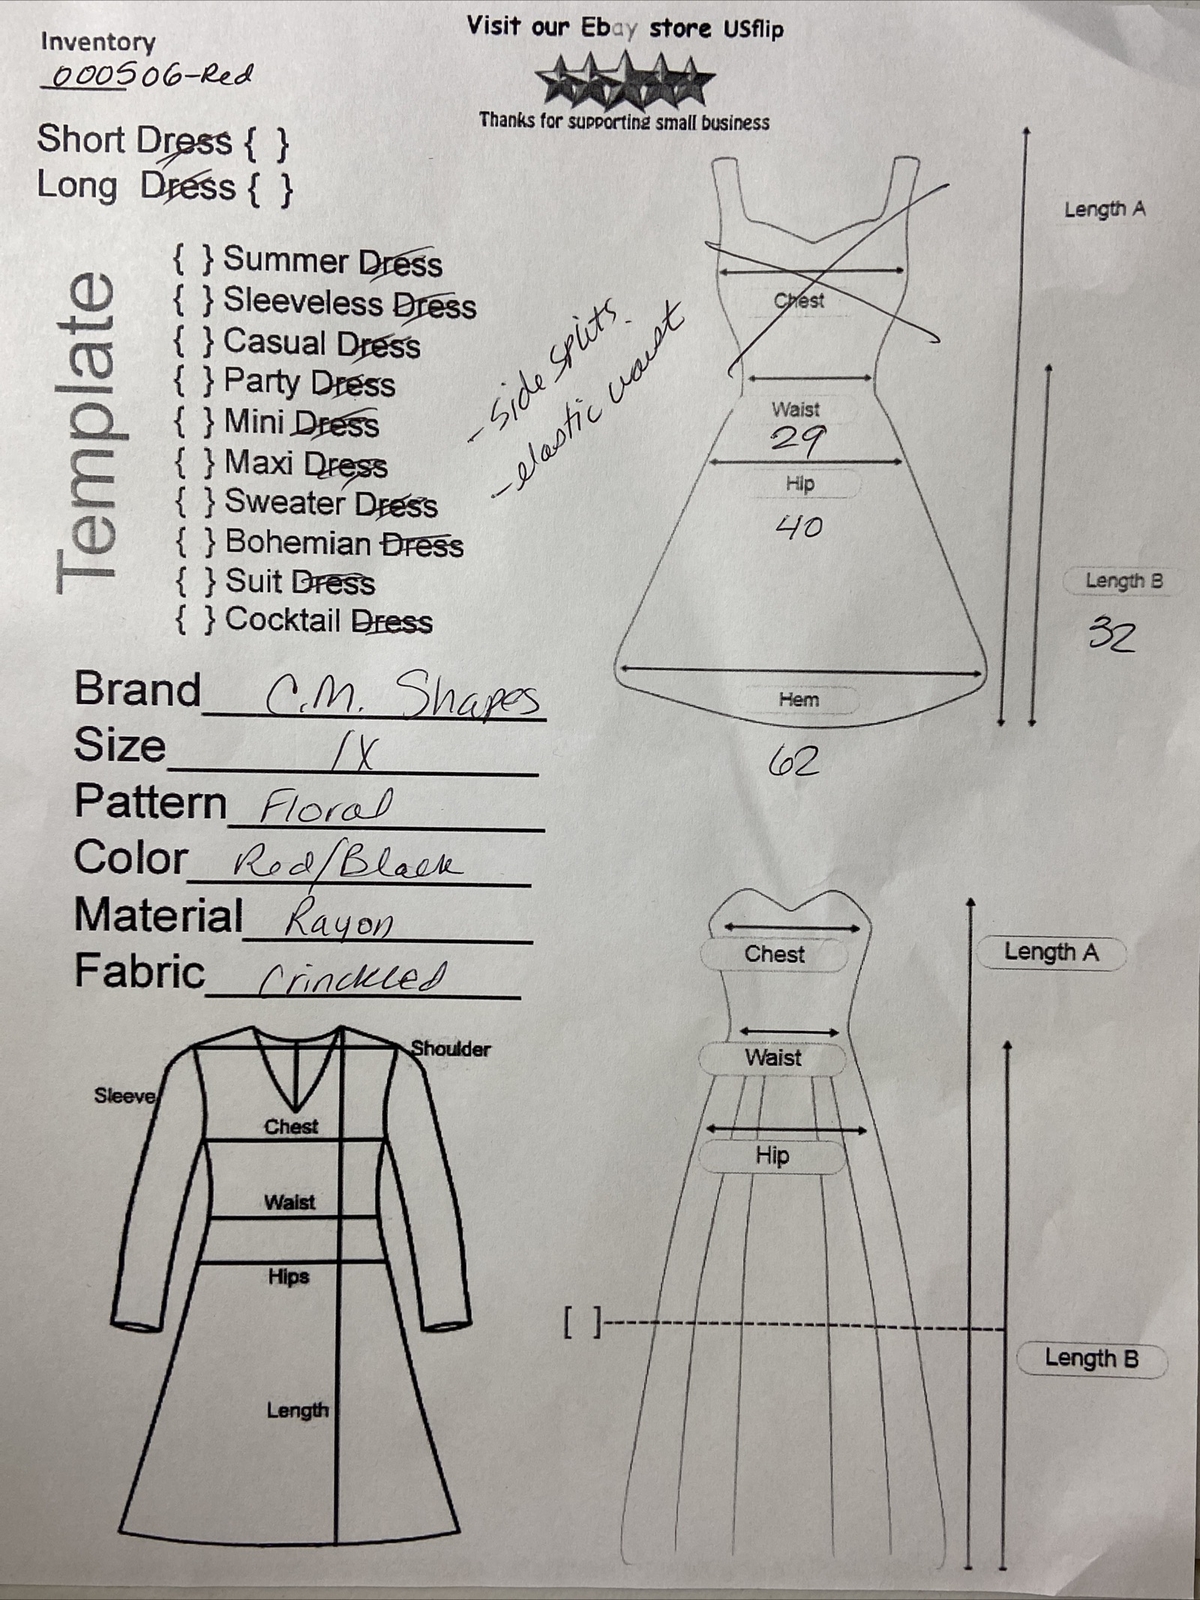 Visit our Ebay store USflip
Thanks for supporting small business
Inventory
000506-Red
Short Dress { }
Long Dress { }
Template
{ } Summer Dress
{ } Sleeveless Dress
{ } Casual Dress
{ } Party Dress
{ } Mini Dress
{ } Maxi Dress
{ } Sweater Dress
{ } Bohemian Dress
{ } Suit Dress
{ } Cocktail Dress
- side splits
- elastic waist
Length A
Chest
Waist
29
Hip
40
Length B
32
Hem
62
Brand C.M. Shapes
Size 1X
Pattern Floral
Color Red/Black
Material Rayon
Fabric Crinckled
Shoulder
Sleeve
Chest
Waist
Hips
Length
Chest
Length A
Waist
Hip
[ ]
Length B